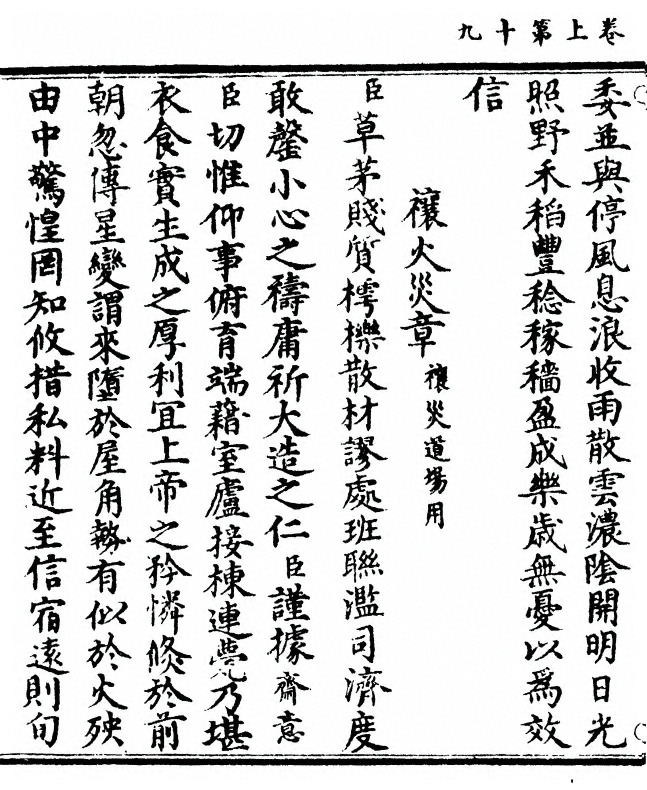 卷上第十九
委並與停風息浪收雨散雲濃陰開明日光
照野禾稻豐稔稼穡盈成樂歲無憂以為效
信
禳火災章 禳災道場用
臣草茅賤質樗櫟散材謬處班聯濫司濟度
敢罄小心之禱庸祈大造之仁臣謹據齋意
臣切惟仰事俯育端藉室廬接棟連甍乃堪
衣食實生成之厚利宜上帝之矜憐倏於前
朝忽傳星變謂來墮於屋角勢有似於火殃
由中驚惶罔知攸措私料近至信宿遠則旬